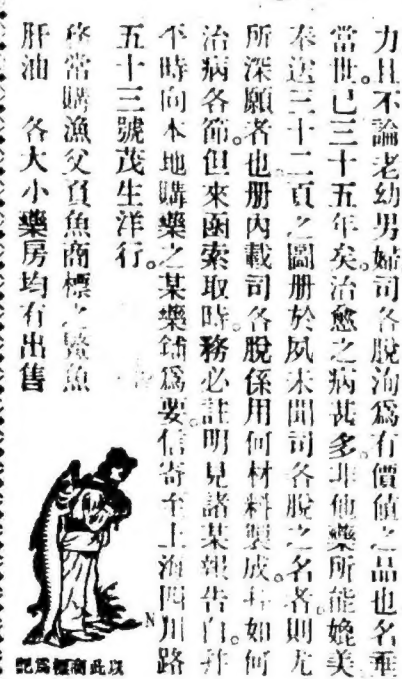 力且不論老幼男婦司各脫洵爲有價値之品也名重
當世。已三十五年矣。治愈之病甚多。非他藥所能媲美
奉送三十二頁之圖册於夙未聞司各脫之名者。則尤
所深願者也。册內載司各脫係用何材料製成。幷如何
治病各節。但來函索取時。務必註明見諸某報告白。幷
不時向本地購藥之某藥鋪爲要。信寄至上海四川路
五十三號茂生洋行。
務當購漁父負魚商標之鰵魚
肝油 各大小藥房均有出售
N
以此商標爲記